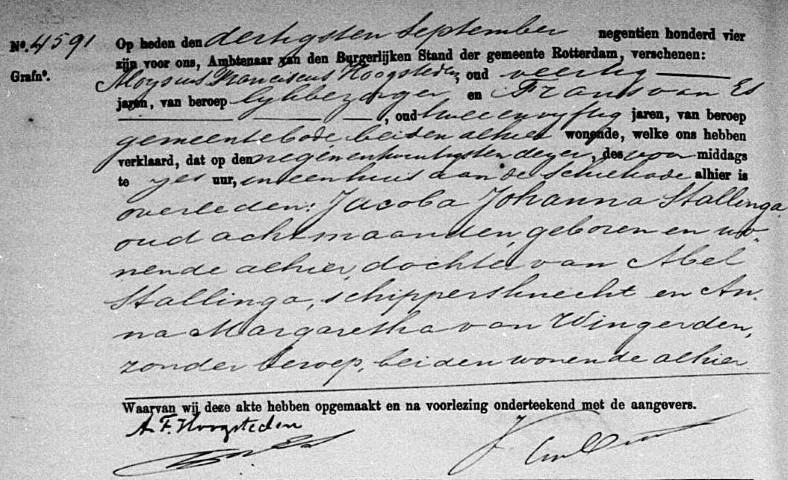 No. 4591 Op heden den dertigsten September negentien honderd vier
zijn voor ons, Ambtenaar van den Burgerlijken Stand der gemeente Rotterdam, verschenen:
Grafno. Aloysius Franciscus Hoogsteden, oud veertig
jaren, van beroep lijkbezorger en Frans van Es
, oud twee en vijftig jaren, van beroep
gemeentebode beiden alhier wonende, welke ons hebben
verklaard, dat op den negenentwintigsten dezer, des voor middags
te zes uur, in een huis aan de Schiekade alhier is
overleden: Jacoba Johanna Stallinga
oud acht maanden geboren en wo
nende alhier, dochter van Abel
Stallinga, schippersknecht en An
na Margaretha van Wingerden,
zonder beroep, beiden wonende alhier
Waarvan wij deze akte hebben opgemaakt en na voorlezing onderteekend met de aangevers.
A. F. Hoogsteden